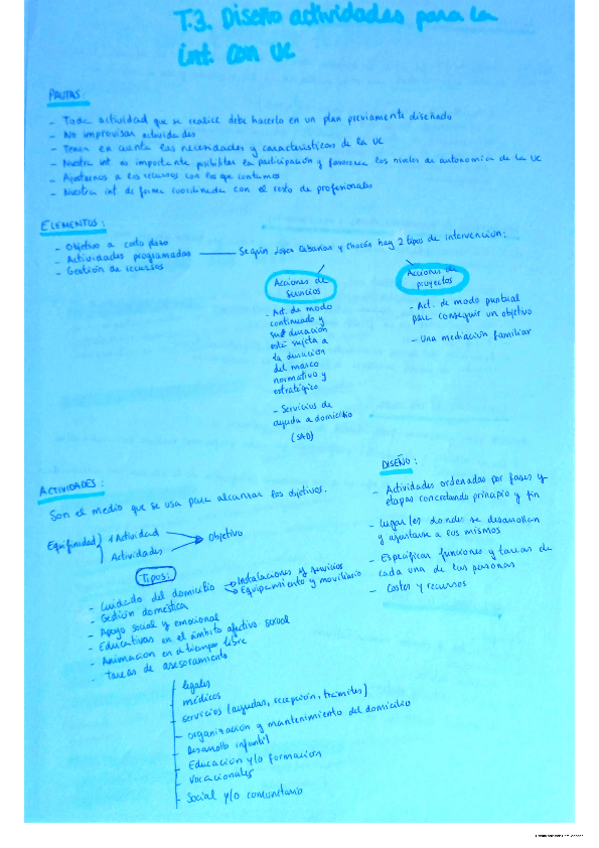 T.3. Diseño actividades para la
int. con UC
PAUTAS:
- Toda actividad que se realice debe hacerlo en un plan previamente diseñado
- No improvisar actividades
- Tener en cuenta las necesidades y características de la UC
- Nuestra int es importante posibilitar la participación y favorecer los niveles de autonomía de la UC
- Ajustarnos a los recursos con los que contamos
- Nuestra int de forma coordinada con el resto de profesionales
ELEMENTOS:
- Objetivo a corto plazo
- Actividades programadas
- Gestión de recursos
Según López Cabañas y Chacón hay 2 tipos de intervención:
Acciones de
servicios
- Act. de modo
continuado y
su duración
está sujeta a
la duración
del marco
normativo y
estratégico
- Servicios de
ayuda a domicilio
(SAD)
Acciones de
proyectos
- Act. de modo puntual
para conseguir un objetivo
- Una mediación familiar
ACTIVIDADES:
Son el medio que se usa para alcanzar los objetivos.
Equifinidad
1 Actividad
Actividades
Objetivo
Tipos:
- Cuidado del domicilio
Instalaciones y servicios
Equipamiento y moviliario
- Gestión doméstica
- Apoyo social y emocional
- Educativas en el ámbito afectivo sexual
- Animación en el tiempo libre
- tareas de asesoramiento
legales
médicos
servicios (ayudas, recepción, trámites)
- organización y mantenimiento del domicilio
Desarrollo infantil
Educación y/o formación
Vocacionales
Social y/o comunitario
DISEÑO:
- Actividades ordenadas por fases y
etapas concretando principio y fin
- Lugar/es donde se desarrollan
y ajustarse a los mismos
- Especificar funciones y tareas de
cada una de las personas
- Costes y recursos